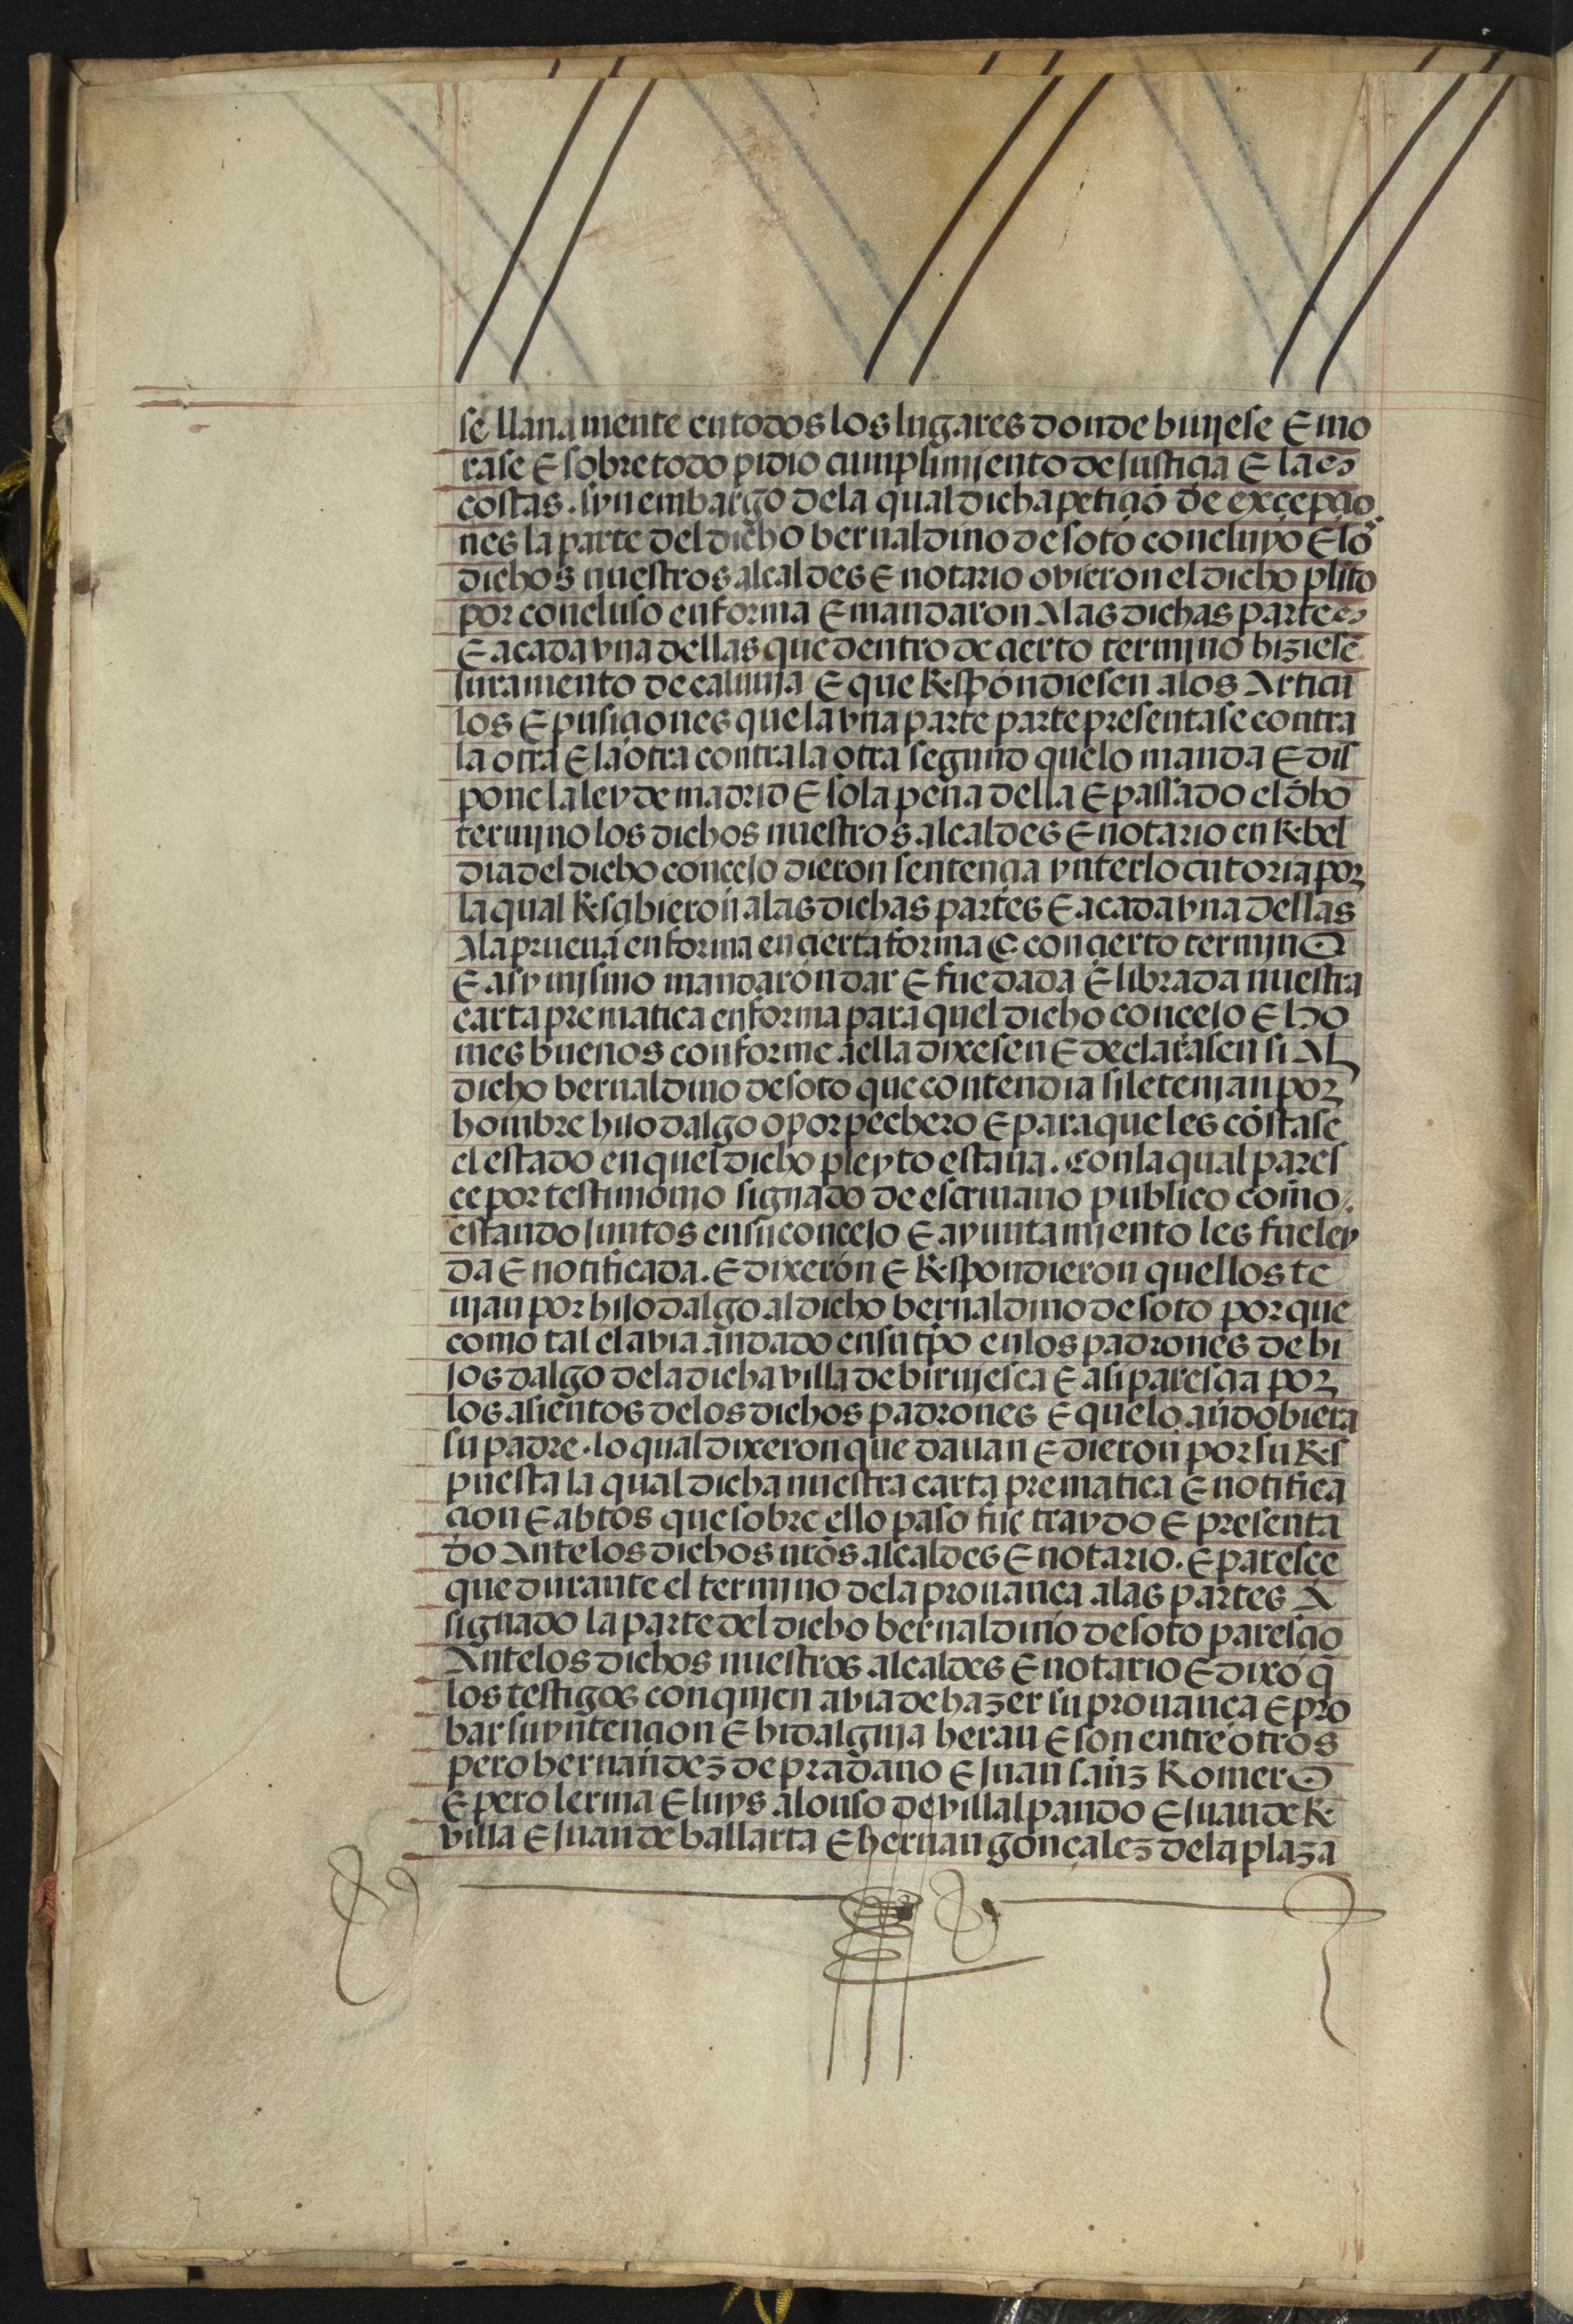 se llana mente en todos los lugares donde biujese E mo
rase E sobre todo pidio cunplimjento de justiçia E las
costas . syn embargo dela qual dicha petiçiō de exçepçio
nes la parte del dicho bernaldino de soto concluyo E los
dichos nuestros alcaldes E notario ovieron el dicho plito
por concluso en forma E mandaron A las dichas partes
E a cada vna dellas que dentro de çierto termjno hiziesē
juramento de calunja E que Respondiesen a los Articu
los E pusiçiones que la vna parte parte presentase contra
la otra E la otra contra la otra segund que lo manda E dis
pone la ley de madrid E so la pena della E passado el dho
termjno los dichos nuestros alcaldes E notario en Rebel
dia del dicho conçejo dieron sentençia ynterlocutoria por
la qual Resçibieron a las dichas partes E a cada vna dellas
A la prueua en forma en çierta forma E con çierto termjno
E asy mjsmo mandaron dar E fue dada E librada nuestra
carta prematica en forma para quel dicho conçejo E ho
mes buenos conforme a ella dixesen E declarasen si Al
dicho bernaldino de soto que contendia si le tenjan por
hombre hijo dalgo o por pechero E para que les cōstase
el estado en quel dicho pleyto estaua . con la qual pares
çe por testimonio signado de escriuano publico como
estando juntos en su conçejo E ayuntamjento les fue ley
da E notificada . E dixeron E Respondieron quellos te
njan por hijo dalgo al dicho bernaldino de soto por que
como tal el avia andado en su tpo en los padrones de hi
jos dalgo dela dicha villa de birujesca E asi paresçia por
los asientos delos dichos padrones E que lo andobiera
su padre . lo qual dixeron que dauan E dieron por su Res
puesta la qual dicha nuestra carta prematica E notifica
çion E abtos que sobre ello paso fue traydo E presenta
do Ante los dichos nr̄os alcaldes E notario . E paresçe
que durante el termjno dela prouança a las partes A
signado la parte del dicho bernaldino de soto paresçio
Ante los dichos nuestros alcaldes E notario E dixo q̄
los testigos con qujen avia de hazer su prouança E pro
bar su yntençion E hidalguja heran E son entre otros
pero hernandez de pradano E juan sanz Romero
E pero lerma E luys alonso de villalpando E juan de Re
villa E juan de ballarta E hernan gonçalez dela plaza